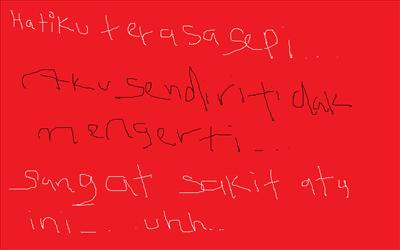 Hatiku terasa sepi...
Aku sendiri tidak
mengerti...
sangat sakit
ini_.. uhh..